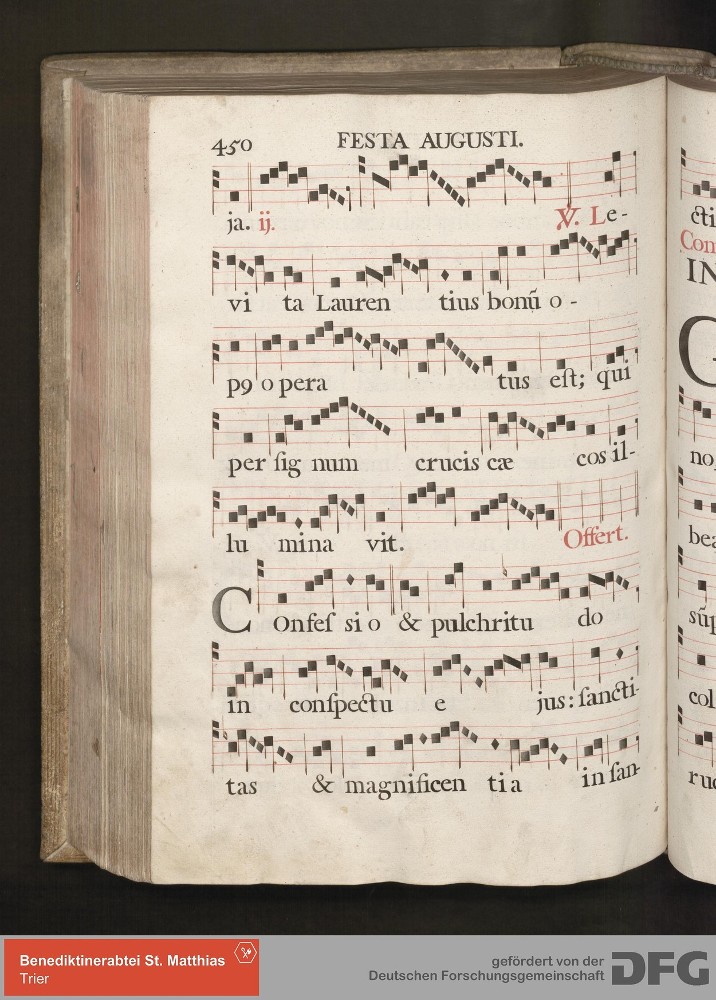 450 FESTA AUGUSTI.
ja. ij. ℣. Le-
vi ta Lauren tius bonũ o-
p9 o pera tus eſt; qui
per ſig num crucis cæ cos il-
lu mina vit. Offert.
COnfeſ si o & pulchritu do
in conſpectu e jus: ſancti-
tas & magnificen ti a in ſan-
cti
Com
IN
G
no,
bea
sũp
col
ruc
Benediktinerabtei St. Matthias
Trier
gefördert von der
Deutschen Forschungsgemeinschaft
DFG